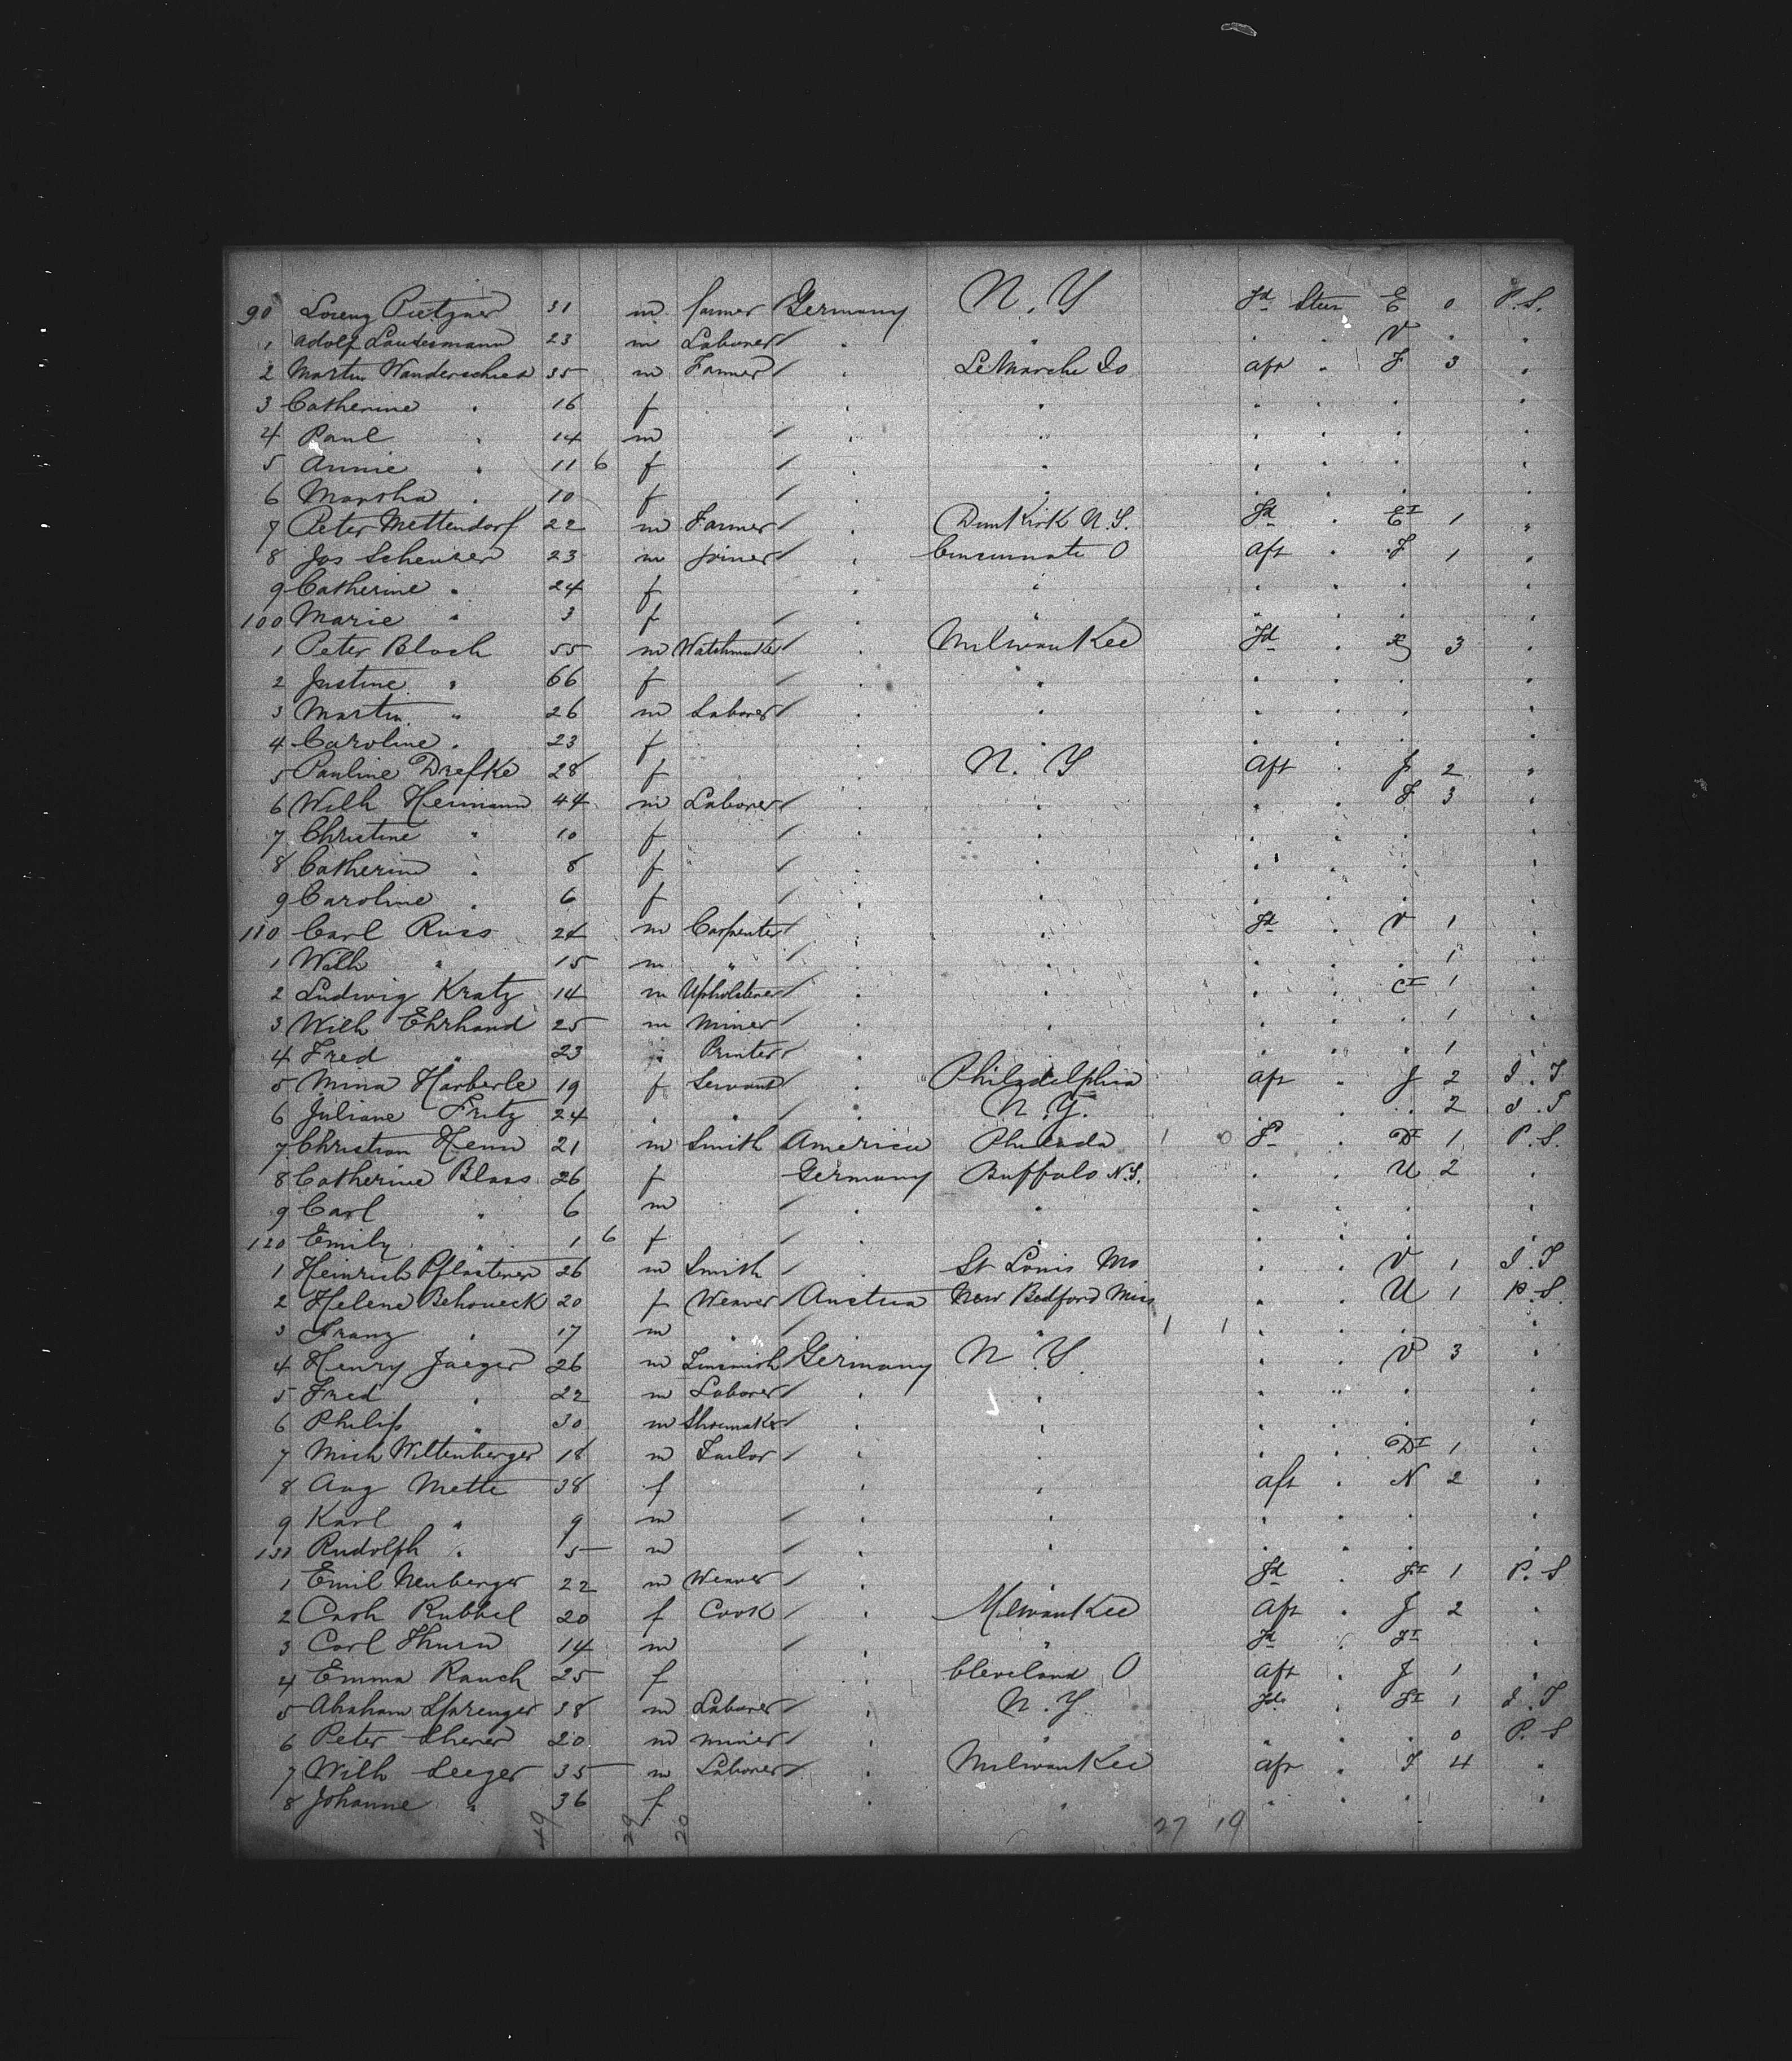 90 Lorenz Pietzner 31 m farmer Germany N.Y Fd Steer E 0 P.S.
1 Adolf Laudesmann 23 m Laborer / . . . . V . .
2 Martin Wanderschied 35 m Farmer / . LeMarche Io aft . F 3 .
3 Catherine . 16 f . . . . . .
4 Paul . 14 m / . . . . . .
5 Annie . 11 6 f / . . . . . .
6 Martha . 10 f / . . . . . .
7 Peter Mettendorf 22 m Farmer / . Dunkirk N.Y. Fd . E I 1 "
8 Jos Scheuren 23 m Joiner / . Cincinnati O aft . F 1 .
9 Catherine " 24 f . . . . . .
100 Marie " 3 f / . " . . . .
1 Peter Bloch 55 m Watchmaker / . Milwaukee Fd . 3 .
2 Justine " 66 f / . . . . . .
3 Martin " 26 m Laborer / . . . . . .
4 Caroline . 23 f . . . . . .
5 Pauline Drefke 28 f . N.Y aft . J 2 "
6 Wilh Heimann 44 m Laborer / . . . . F 3 .
7 Christine " 10 f / . . . . . .
8 Catherine . 8 f / . . . . . .
9 Caroline . 6 f / . . . . . .
110 Carl Russ 24 m Carpenter / . . Fd . V 1 .
1 Wilh " 15 m " / . . . . . 1 .
2 Ludwig Kratz 14 m Upholsterer / . . . . C I 1 .
3 Wilh Ehrhand 25 m Miner / . . . . . 1 .
4 Fred " 23 " Printer / . . . . . 1 .
5 Mina Harberle 19 f Servant / . Philadelphia aft . J 2 I.T
6 Juliane Fritz 24 . " / . N.Y. . . . 2 I.T
7 Christian Henn 21 m Smith America Philada 1 0 Fd . D I 1 P.S.
8 Catherine Blass 26 f Germany Buffalo N.Y. . . U 2 .
9 Carl " 6 m / . . . . . .
120 Emily " 1 6 f / . . . . . .
1 Heinrich Pflasterer 26 m Smith / . St Louis Mo . . V 1 I.T
2 Helene Behoueck 20 f Weaver / Austria New Bedford Mass . . U 1 P.S.
3 Franz . 17 m " / . " 1 1 . . . .
4 Henry Jaeger 26 m Tinsmith Germany N.Y. . . V 3 .
5 Fred . 22 m Laborer / . . . . . .
6 Philip " 30 m Shoemaker / . . . . . .
7 Mich Wiltenberger 18 m Tailor / . . . . D I 1 .
8 Aug Mette 38 f . . aft . N 2 .
9 Karl " 9 m / . . . . . .
130 Rudolph . 5 m / . . . . . .
1 Emil Neuberger 22 m Weaver / . . Fd . F I 1 P.S
2 Cath Rubbel 20 f Cook / . Milwaukee aft . J 2 .
3 Carl Thurn 14 m / . " Fd . F I .
4 Emma Rauch 25 f . Cleveland O aft . J 1 .
5 Abraham Sprenger 38 m Laborer / . N.Y. Fd . F I 1 I.T
6 Peter Sherer 20 m miner / . " . . . 0 P.S
7 Wilh Seeger 35 m Laborer / . Milwaukee aft . F 4 .
8 Johanne " 36 f . . . . . .
49 29 20 27 19